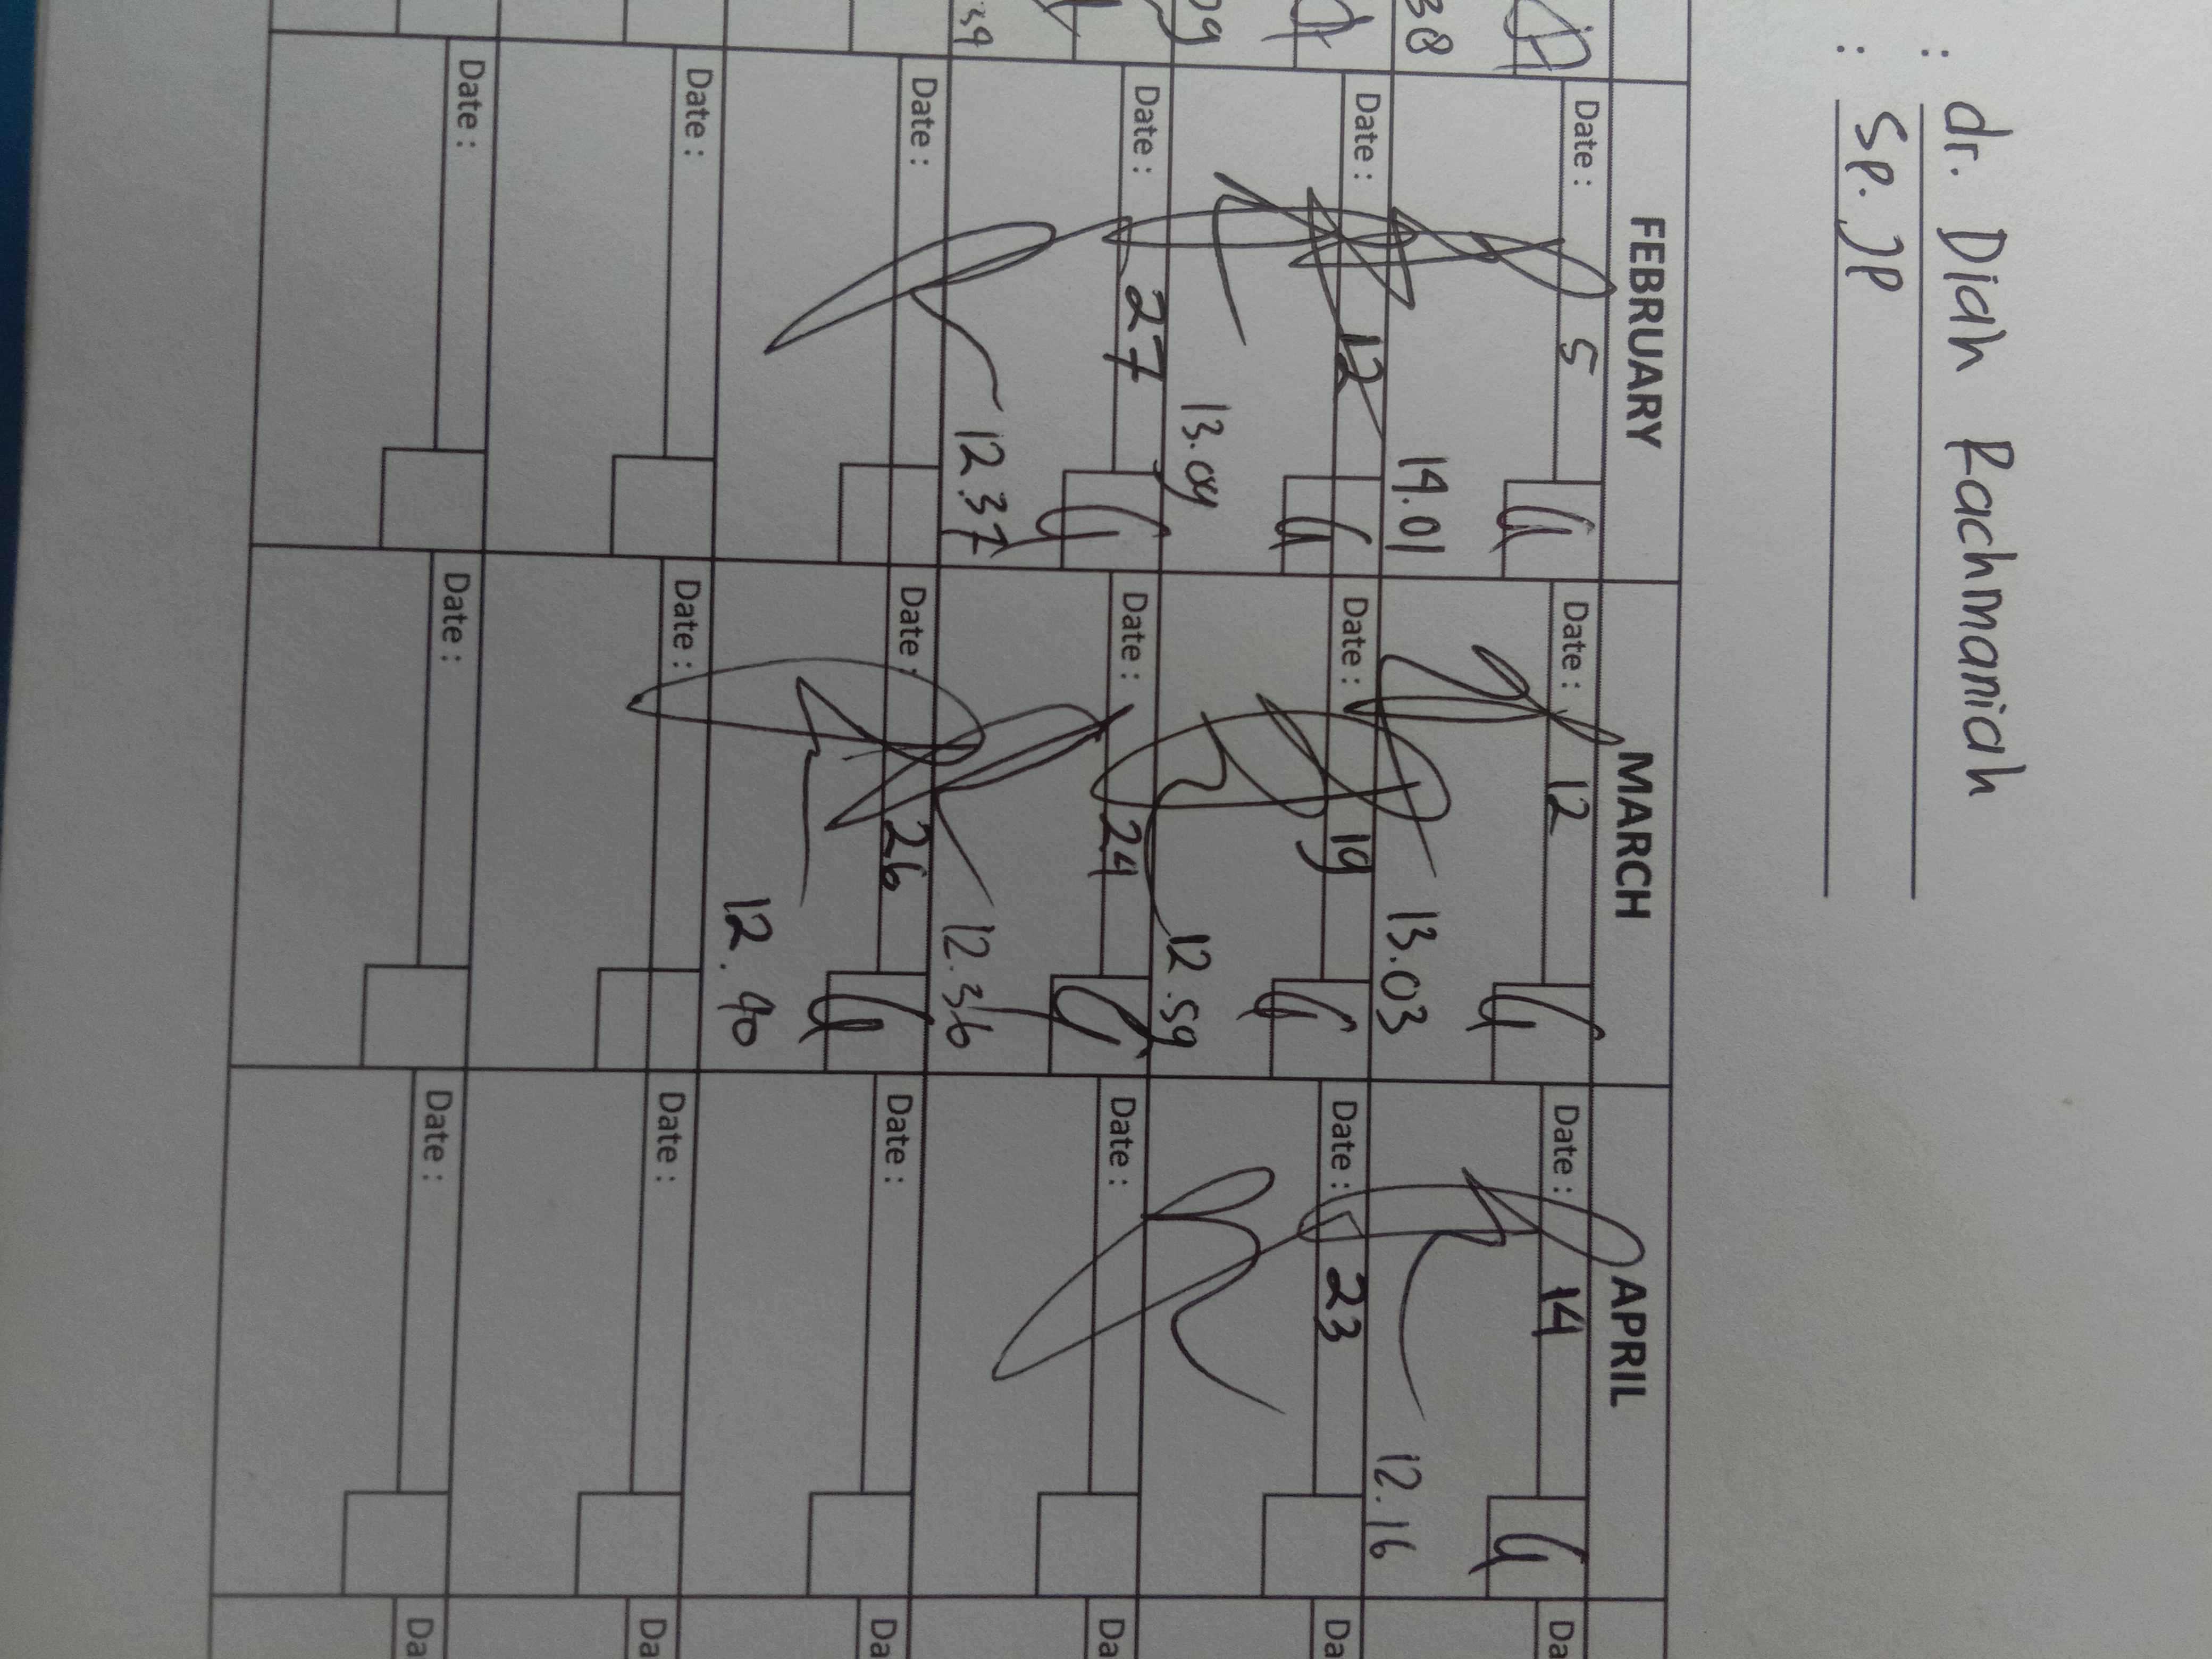 : dr. Diah Rachmaniah
: Sp. JP
FEBRUARY MARCH APRIL
Date : 5 Date : 12 Date : 14 Da
38 14.01 13.03 12.16
Date : 12 Date : 19 Date : 23 Da
09 13.09 12.59
Date : 27 Date : 24 Date : Da
:39 12.37 12.36
Date : Date : 26 Date : Da
12.40
Date : Date : Date : Da
Date : Date : Date : Da